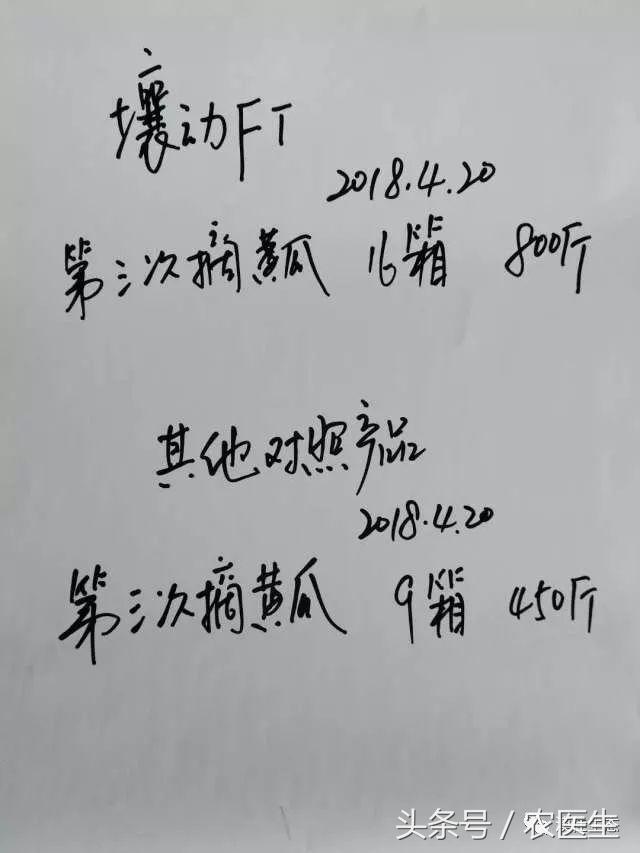 壤动FT
2018.4.20
第三次摘黄瓜 16箱 800斤
其他对照产品
2018.4.20
第三次摘黄瓜 9箱 450斤
头条号／农医生